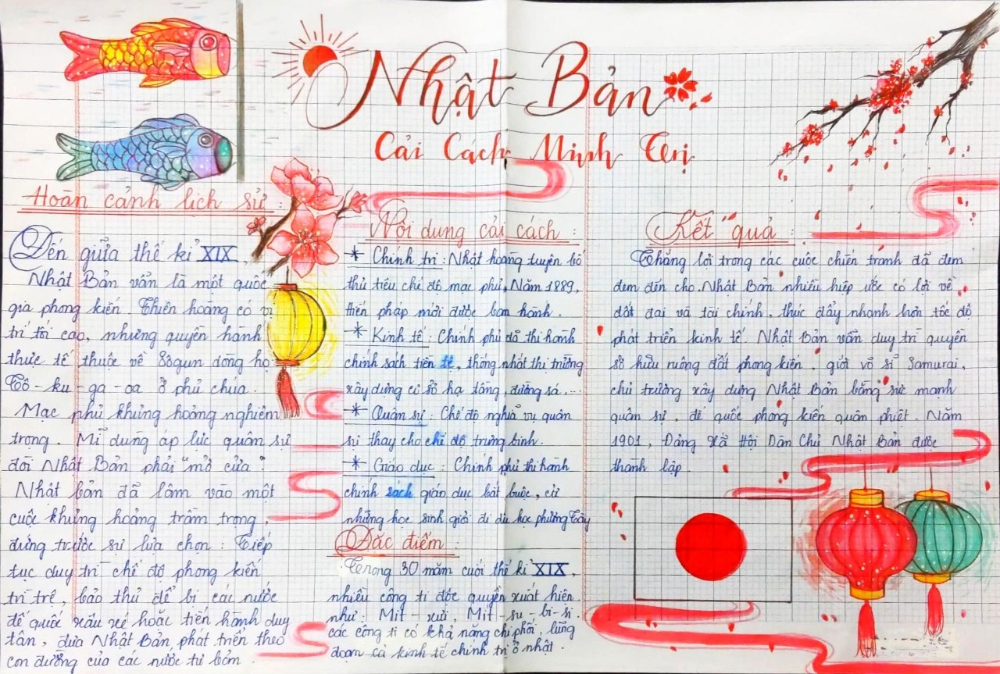 Nhật Bản
Cải Cách Minh Trị
Hoàn cảnh lịch sử :
Đến giữa thế kỉ XIX,
Nhật Bản vẫn là một quốc
gia phong kiến. Thiên hoàng có vị
trí tối cao, nhưng quyền hành
thực tế thuộc về Sôgun dòng họ
Tô-ku-ga-oa ở phủ chúa.
Mạc phủ khủng hoảng nghiêm
trọng. Mĩ dùng áp lực quân sự
đòi Nhật Bản phải "mở cửa"
Nhật bản đã lâm vào một
cuộc khủng hoảng trầm trọng,
đứng trước sự lựa chọn : Tiếp
tục duy trì chế độ phong kiến
trì trệ, bảo thủ để bị các nước
đế quốc xâu xé hoặc tiến hành duy
tân, đưa Nhật Bản phát triển theo
con đường của các nước tư bản.
Nội dung cải cách :
* Chính trị : Nhật hoàng tuyên bố
thủ tiêu chế độ mạc phủ, Năm 1889,
hiến pháp mới được ban hành.
* Kinh tế : Chính phủ đã thi hành
chính sách tiền tệ, thống nhất thị trường
xây dựng cơ sở hạ tầng, đường sá,...
* Quân sự : Chế độ nghĩa vụ quân
sự thay cho chế độ trưng binh.
* Giáo dục : Chính phủ thi hành
chính sách giáo dục bắt buộc, cử
những học sinh giỏi đi du học phương Tây
Đặc điểm :
Trong 30 năm cuối thế kỉ XIX,
nhiều công ti độc quyền xuất hiện
như : Mit-xưi, Mit-su-bi-si
các công ti có khả năng chi phối, lũng
đoạn cả kinh tế chính trị ở nhật.
Kết quả :
Thắng lợi trong các cuộc chiến tranh đã đem
đem đến cho Nhật Bản nhiều hiệp ước có lợi về
đất đai và tài chính, thúc đẩy nhanh hơn tốc độ
phát triển kinh tế. Nhật Bản vẫn duy trì quyền
sở hữu ruộng đất phong kiến, giới võ sĩ Samurai,
chủ trương xây dựng Nhật Bản bằng sức mạnh
quân sự, đế quốc phong kiến quân phiệt. Năm
1901, Đảng Xã Hội Dân Chủ Nhật Bản được
thành lập.